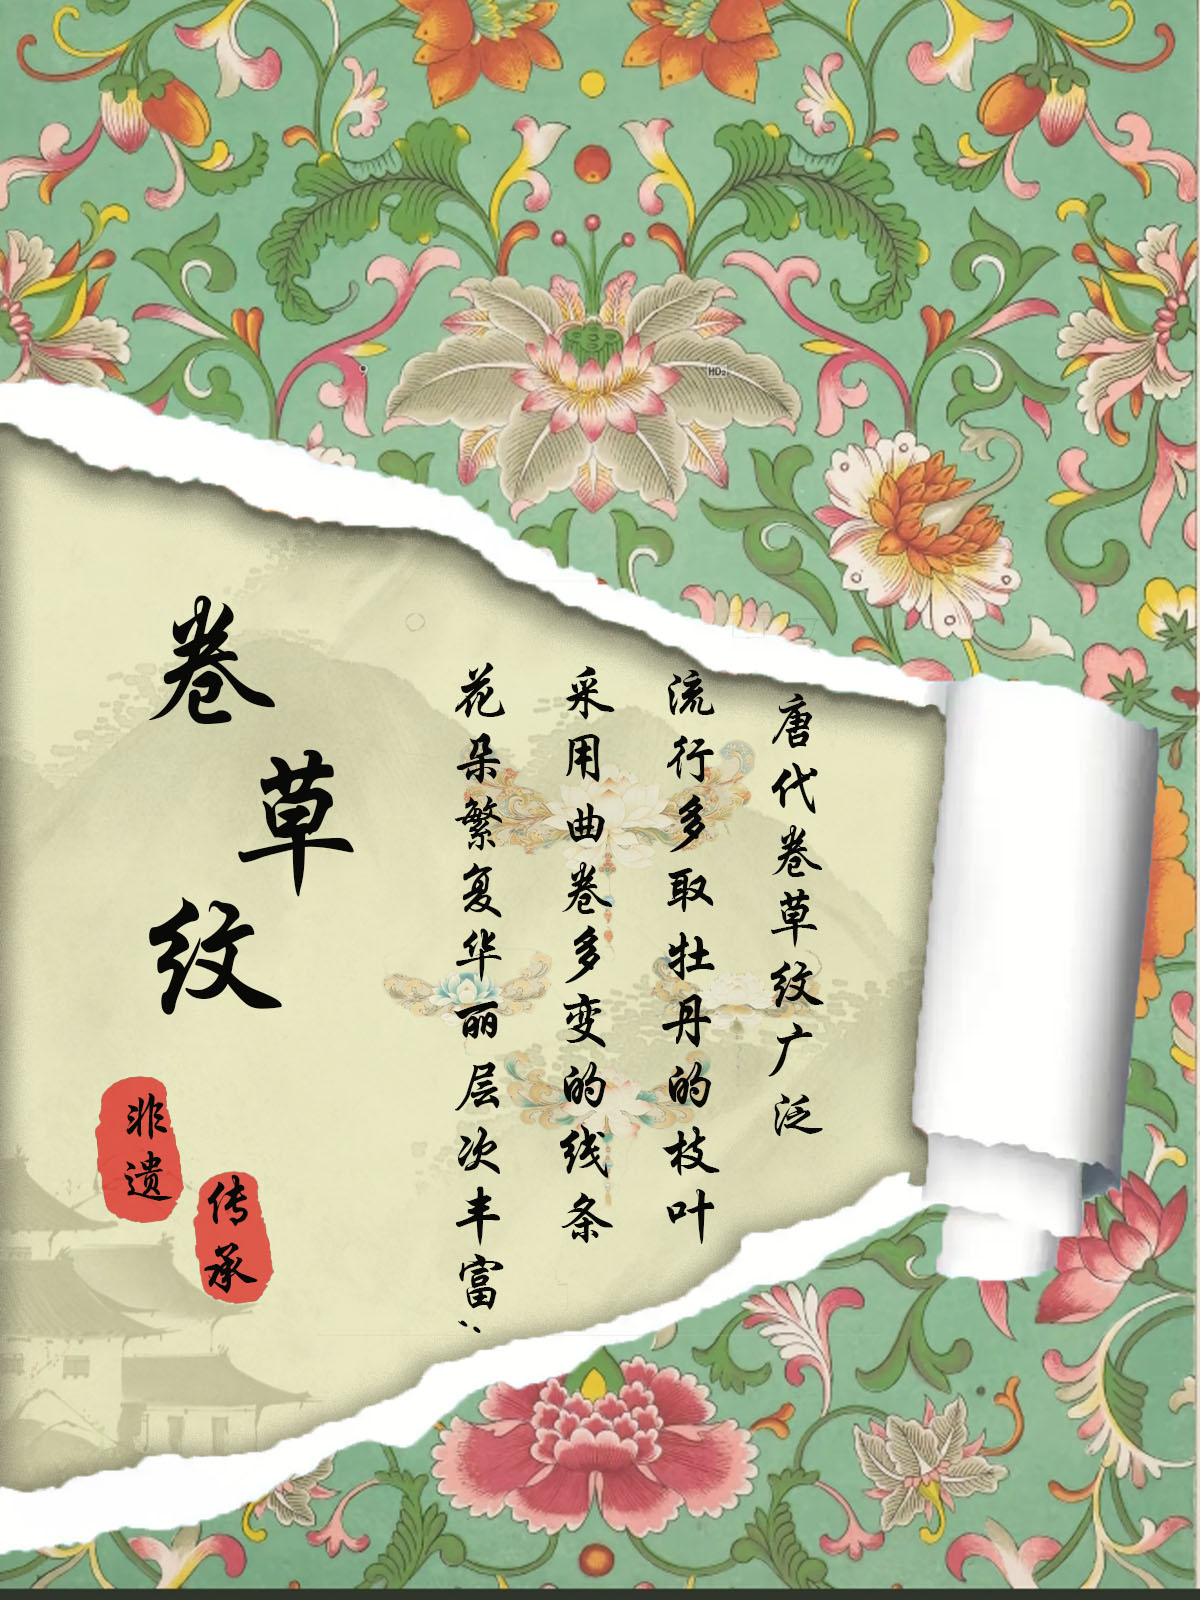 卷草纹
唐代卷草纹广泛
流行多取牡丹的枝叶
采用曲卷多变的线条
花朵繁复华丽层次丰富
非遗
传承
HD2